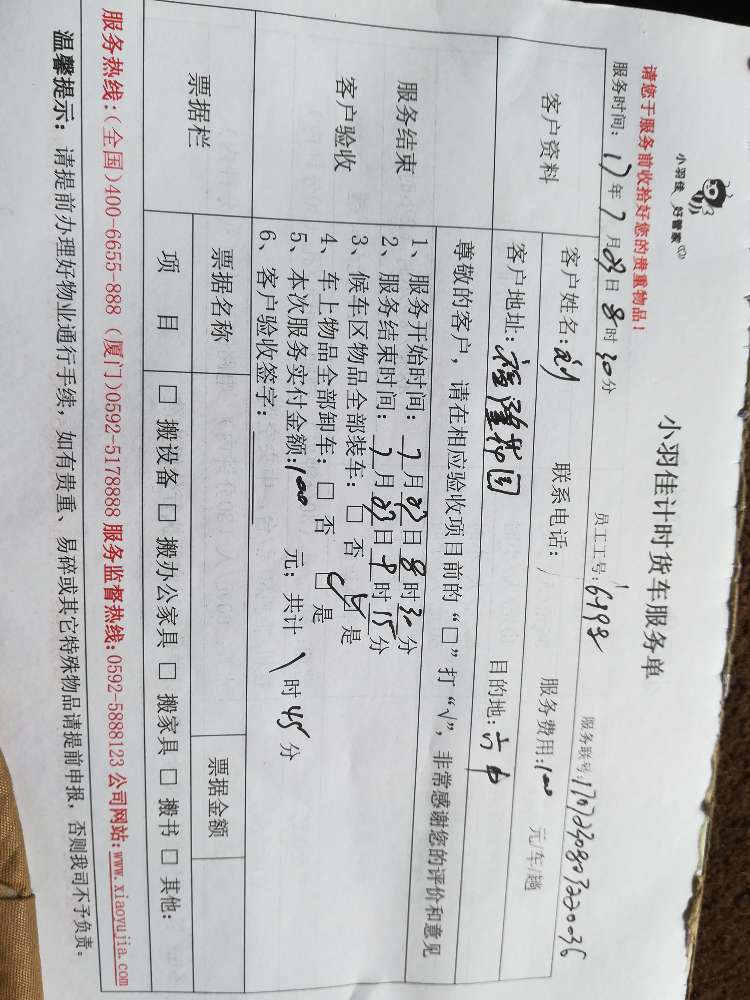 小羽佳 好管家
小羽佳计时货车服务单
请您于服务前收拾好您的贵重物品！
员工工号：6498 服务联号：1707230803220036
服务时间：17年7月23日8时30分
客户资料 客户姓名：刘 联系电话：/ 服务费用：100 元/车/趟
客户地址：福隆花园 目的地：六中
服务结束
客户验收
尊敬的客户，请在相应验收项目前的“□”打“√”，非常感谢您的评价和意见
1、服务开始时间：7月23日8时30分
2、服务结束时间：7月23日9时15分
3、候车区物品全部装车：□ 否 ☑ 是
4、车上物品全部卸车：□ 否 □ 是
5、本次服务实付金额：100 元；共计 \ 时 45 分
6、客户验收签字：
票据栏 票据名称 票据金额
项 目 □ 搬设备 □ 搬办公家具 □ 搬家具 □ 搬书 □ 其他：
服务热线：(全国)400-6655-888 (厦门)0592-5178888 服务监督热线：0592-5888123 公司网站：www.xiaoyujia.com
温馨提示：请提前办理好物业通行手续，如有贵重、易碎或其它特殊物品请提前申报，否则我司不予负责。